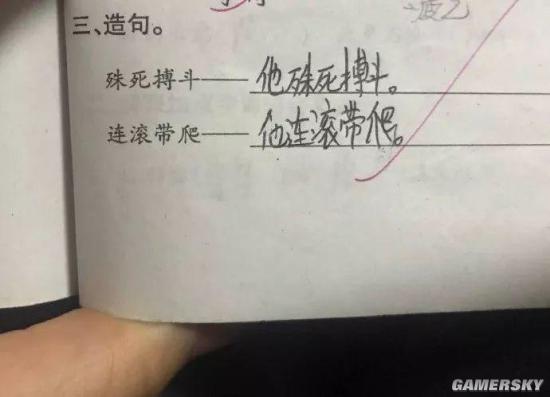 三、造句。
殊死搏斗——他殊死搏斗。
连滚带爬——他连滚带爬。
GAMERSKY